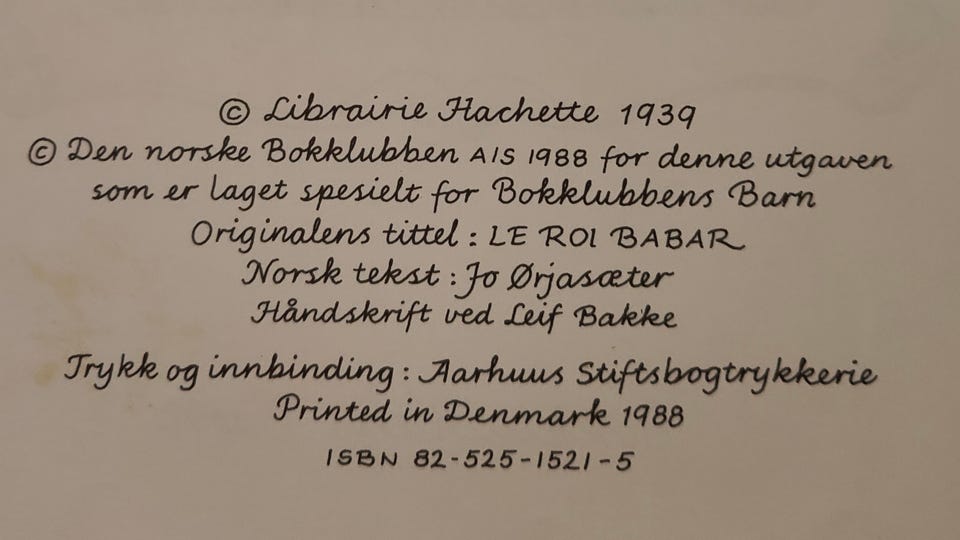 © Librairie Hachette 1939
© Den norske Bokklubben A/S 1988 for denne utgaven
som er laget spesielt for Bokklubbens Barn
Originalens tittel : LE ROI BABAR
Norsk tekst : Jo Ørjasæter
Håndskrift ved Leif Bakke
Trykk og innbinding : Aarhuus Stiftsbogtrykkerie
Printed in Denmark 1988
ISBN 82-525-1521-5